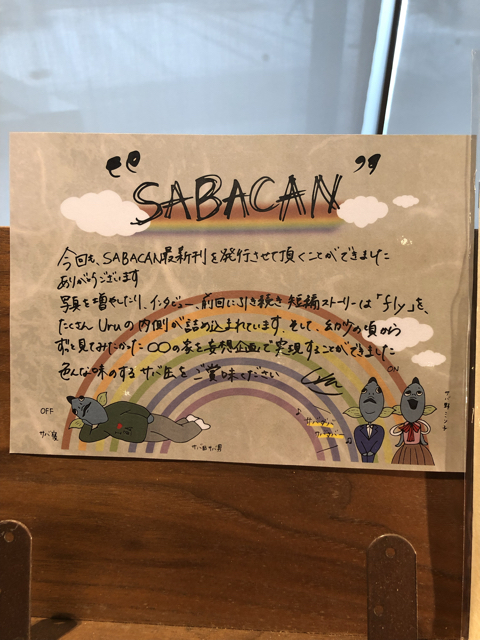 "SABACAN"
今回も、SABACAN最新刊を発行させて頂くことができました
ありがとうございます
写真を増やしたり、インタビュー、前回に引き続き短編ストーリーは「fly」を、
たくさん Uruの内側が詰め込まれています。そして、幼少の頃から
ずっと見てみたかった〇〇の家を妄想企画で実現することができました
色んな味のするサバ缶をご賞味ください
OFF
ON